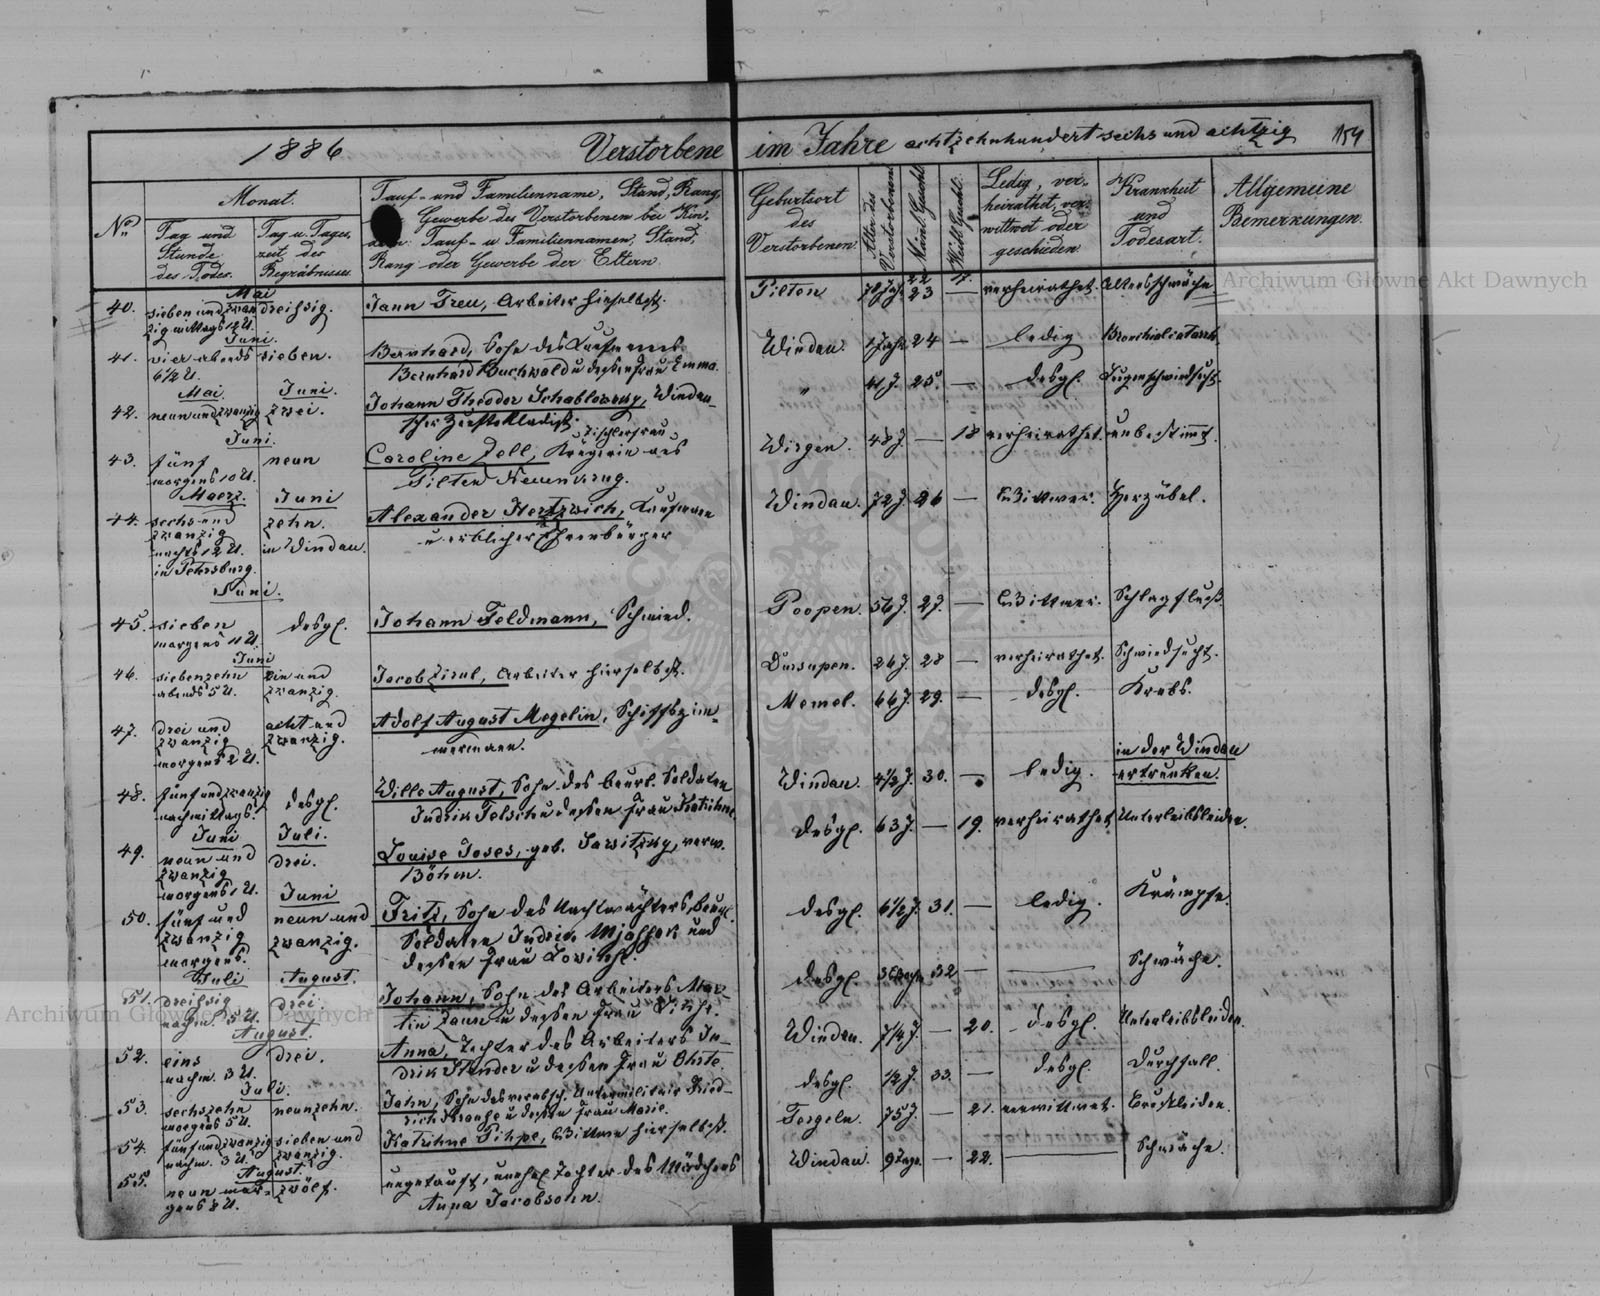 1886
Verstorbene im Jahre achtzehnhundert sechs und achtzig
154
No
Monat.
Tag und Stunde des Todes.
Tag u. Tageszeit des Begräbnisses
Tauf- und Familienname, Stand, Rang,
Gewerbe des Verstorbenen bei Kin-
dern Tauf- u Familiennamen, Stand,
Rang oder Gewerbe der Eltern
Geburtsort des Verstorbenen.
Alter des Verstorbenen
Männl. Geschl.
Weibl. Geschl.
Ledig, ver-
heirathet, ver-
wittwet oder
geschieden
Krankheit
und
Todesart.
Allgemeine
Bemerkungen.
Mai
40. sieben und zwan dreißig. Jann Treu, Arbeiter hieselbst. Pilten 78 Jah. 23 — verheirathet. Altersschwäche
zig mittags 12 U.
Juni.
41. vier abends sieben. Bernhard, Sohn des Kaufmanns Windau. 1 Jahr 24 — ledig Bronchialcatarrh
6½ U. Bernhard Buchwald u dessen Frau Emma.
Mai. Juni.
42. neun und zwanzig zwei. Johann Theodor Schablowsky, Windau- " 41 J. 25. — desgl. Lungenschwindsucht.
scher
Juni.
Tischlerfrau
43. fünf neun Caroline Zell, Krügerin aus Wirgen. 48 J. — 18 verheirathet. unbestimmt.
morgens 10 U. Pilten Neuenkrug.
Maerz. Juni
44. sechs und zehn. Alexander Hertzwich, Kaufmann Windau. 72 J. 26 — Wittwer. Herzübel.
zwanzig in Windau. u erblicher Ehrenbürger
nachts 12 U.
in Petersburg.
Juni.
45. sieben desgl. Johann Feldmann, Schmied. Poopen. 56 J. 27. — Wittwer. Schlagfluß.
morgens 11 U.
Juni
46. siebenzehn ein und Jacob Zirul, Arbeiter hierselbst. 26 J. 28 — verheirathet. Schwindsucht.
abends 5 U. zwanzig.
47. drei und acht und Adolf August Megelin, Schiffszim- Memel. 66 J. 29. — desgl. Krebs.
zwanzig zwanzig. mermann.
morgens 2 U.
48. fünf und zwanzig desgl. Wille August, Sohn des beurl. Soldaten Windau. 4½ J. 30. — ledig. in der Windau
nachmittags. Indrik Felsch u dessen Frau Katrihne ertrunken.
Juni Juli.
49. neun und drei. Louise Joses, geb. Sawitzky, verw. desgl. 63 J. — 19. verheirathet. Unterleibsleiden.
zwanzig Böhm.
morgens 1 U. Juni
50. fünf und neun und Fritz, Sohn des Nachtwächters, beurl. desgl. 6½ J. 31. — ledig. Krämpfe.
zwanzig zwanzig. Soldaten Indrik und
morgens. dessen Frau Lowihse.
Juli August.
51. dreißig drei. Johann, Sohn des Arbeiters Mar- desgl. 32 — — Schwäche.
nachm. 5 U. tin Jann u dessen Frau
August.
52. eins drei. Anna, Tochter des Arbeiters In- Windau. J. — 20. desgl. Unterleibsleiden.
nachm. 3 U. drik Stender u dessen Frau Ohrte.
Juli.
53. sechszehn neunzehn. Jahn, Sohn des verabsch. Untermilitair Fried- desgl. ½ J. 33. — desgl. Durchfall.
morgens 5 U. rich Krause u dessen Frau Marie.
54. fünf und zwanzig sieben und Katrihne Pihpe, Wittwe hierselbst. Tergeln. 75 J. — 21. verwittwet. Brustleiden.
nachm. 3 U. zwanzig.
August.
55. neun mor- zwölf. ungetauft, unehel. Tochter des Mädchens Windau. 9 Tage. — 22. — Schwäche.
gens 8 U. Anna Jacobsohn.
Archiwum Główne Akt Dawnych
Archiwum Główne Akt Dawnych